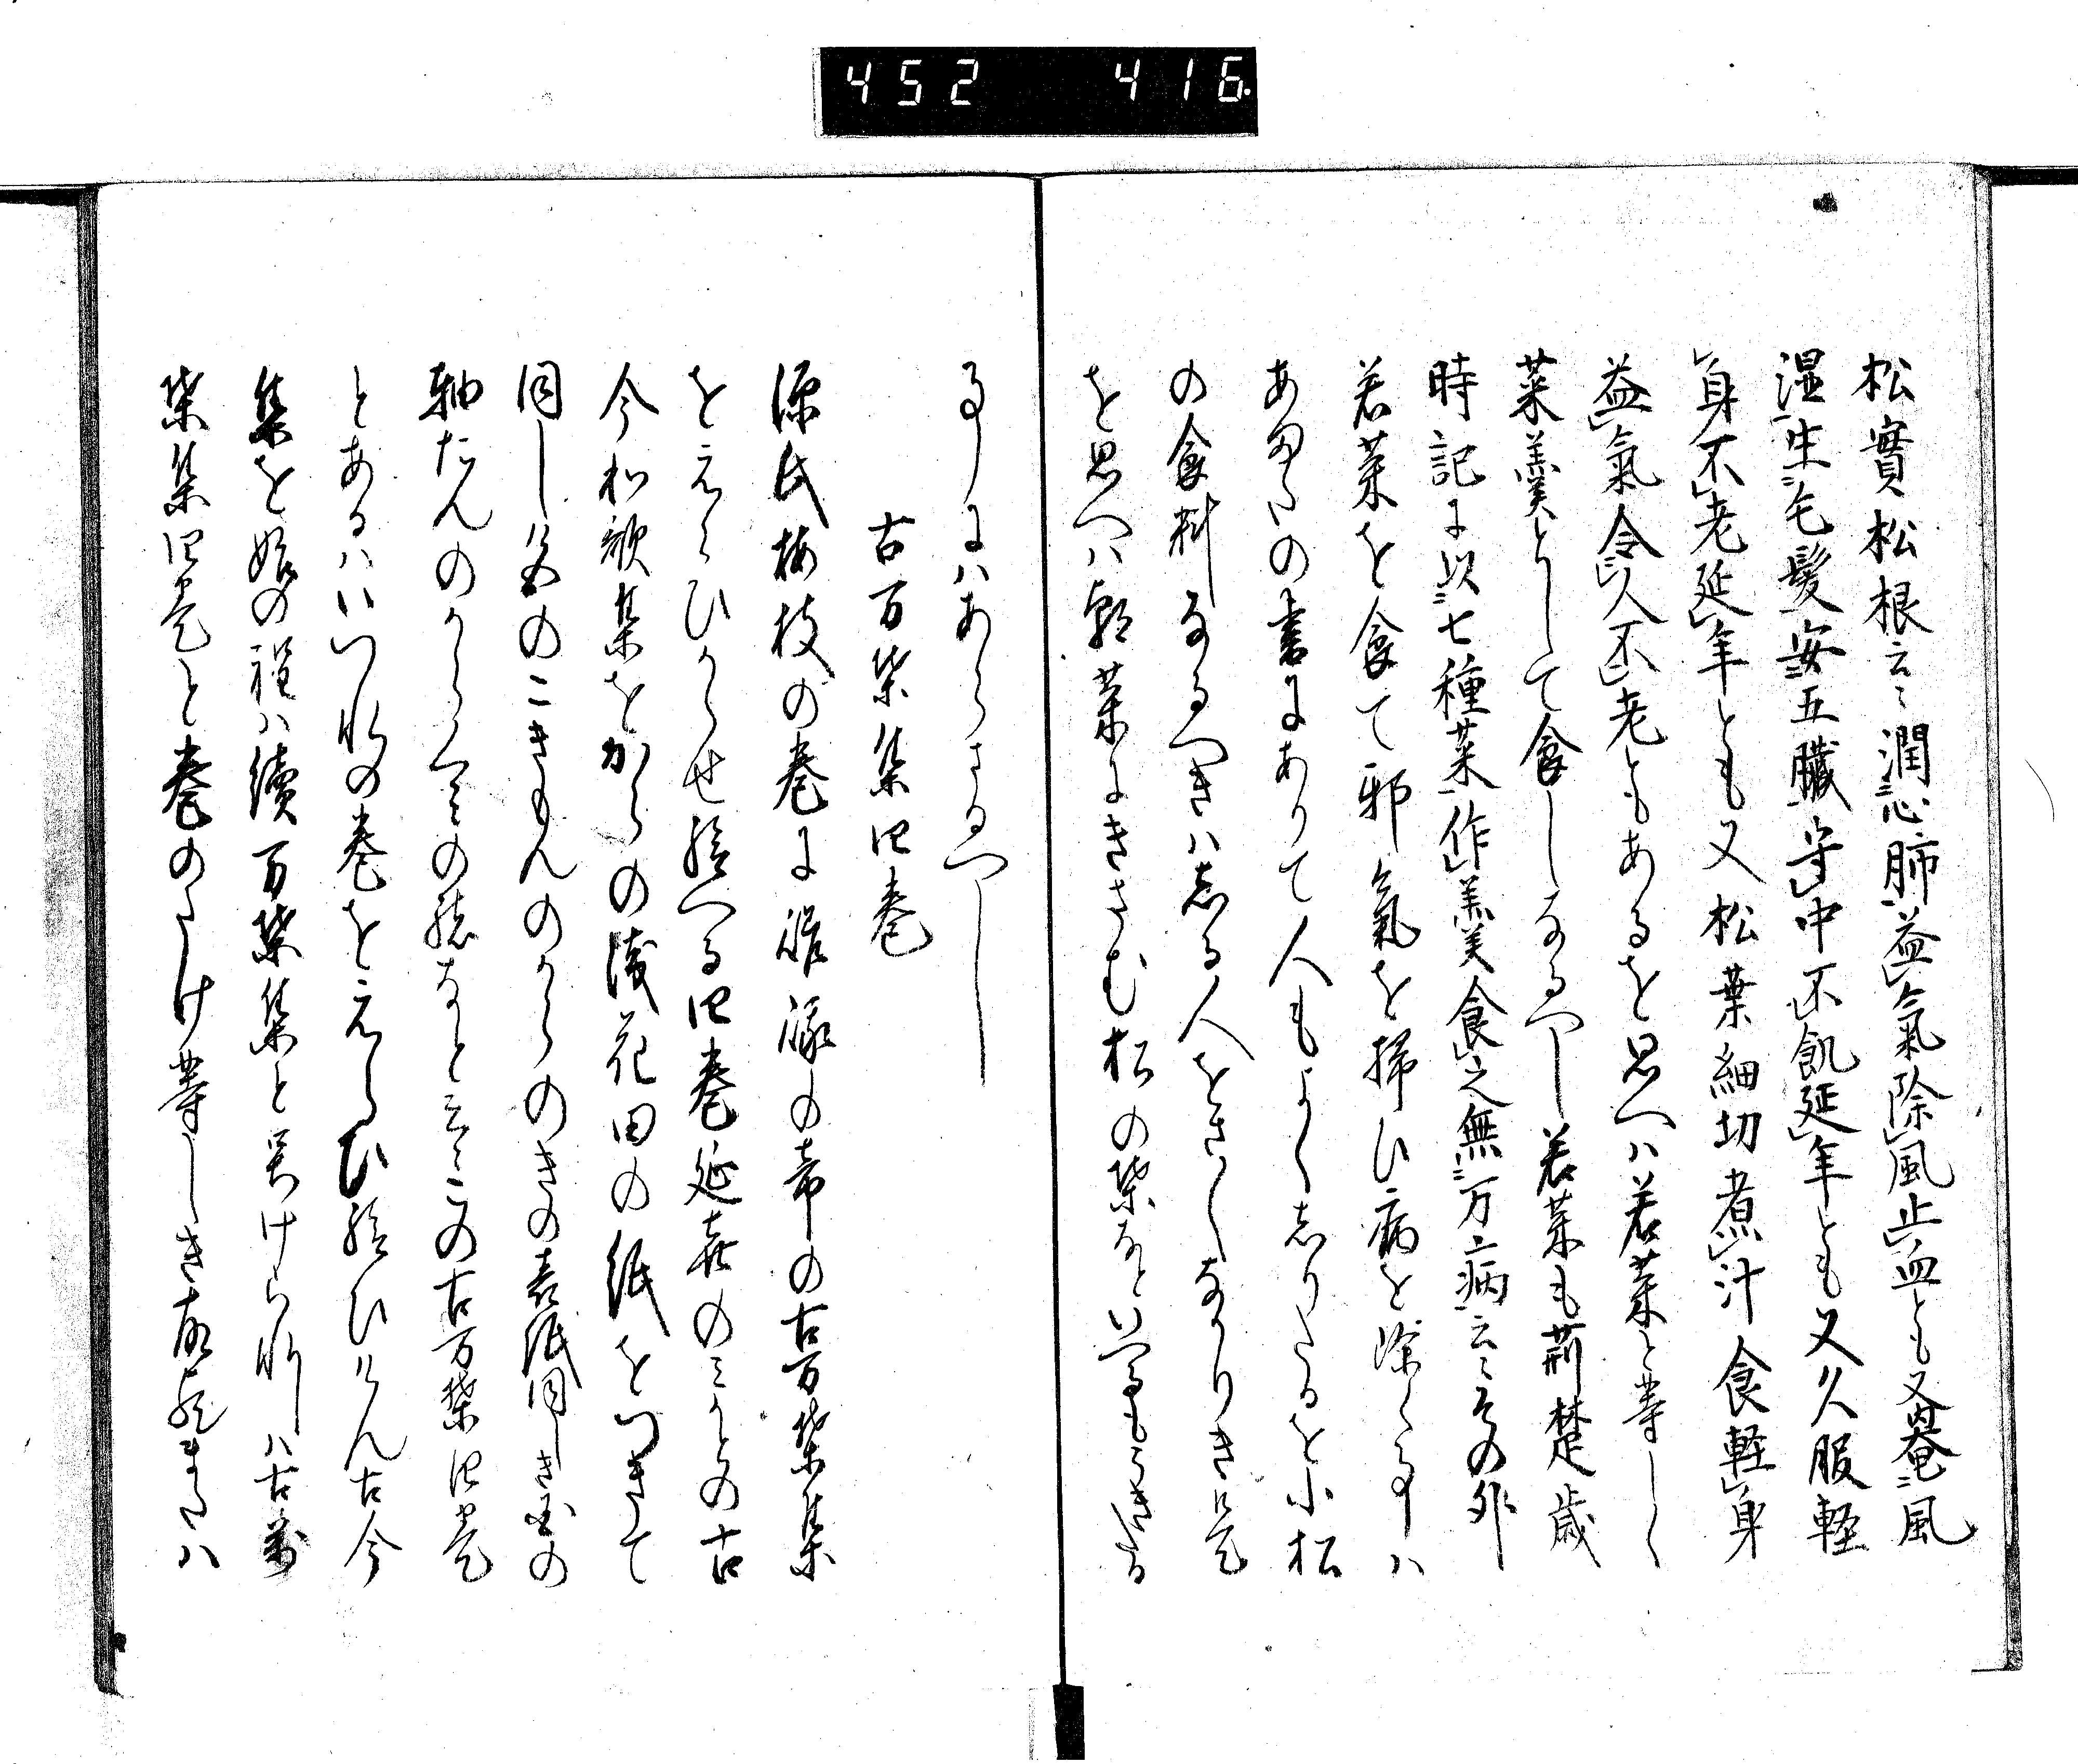 452 416.
松實松根云〻潤心肺益氣除風止血とも又奄風
湿生毛髪安五臓守中不飢延年とも又久服軽
身不老延年とも又松葉細切煮汁食軽身
益氣令人不老ともあるを思へハ若菜と等しく
菜羹として食しなるへし若菜も荊楚歳
時記に以七種菜作羹食之無万病云〻その外
若菜を食て邪氣を掃ひ病を除く事ハ
あまたの書にありて人もよくしりたるを小松
の食料なるへきハ志る人をさ〱なかりき是
を思へハ朝菜にきさむ松の葉なといへるも
事にハあらさるへし
古万葉集四巻
源氏梅枝の巻に嵯峨の帝の古万葉集
をえらひかゝせ給へる四巻延喜のみかとの古
今和歌集をからの浅花田の紙をつきて
同し色のこきもんのからのきの表紙同しき玉の
軸たんのからくみの紐なと云〻この古万葉四巻
とあるハいつれの巻をえらひ給ひけん古今
集を始の程ハ續万葉集と号けられしハ古萬
葉集四巻と巻のたけ等しき故